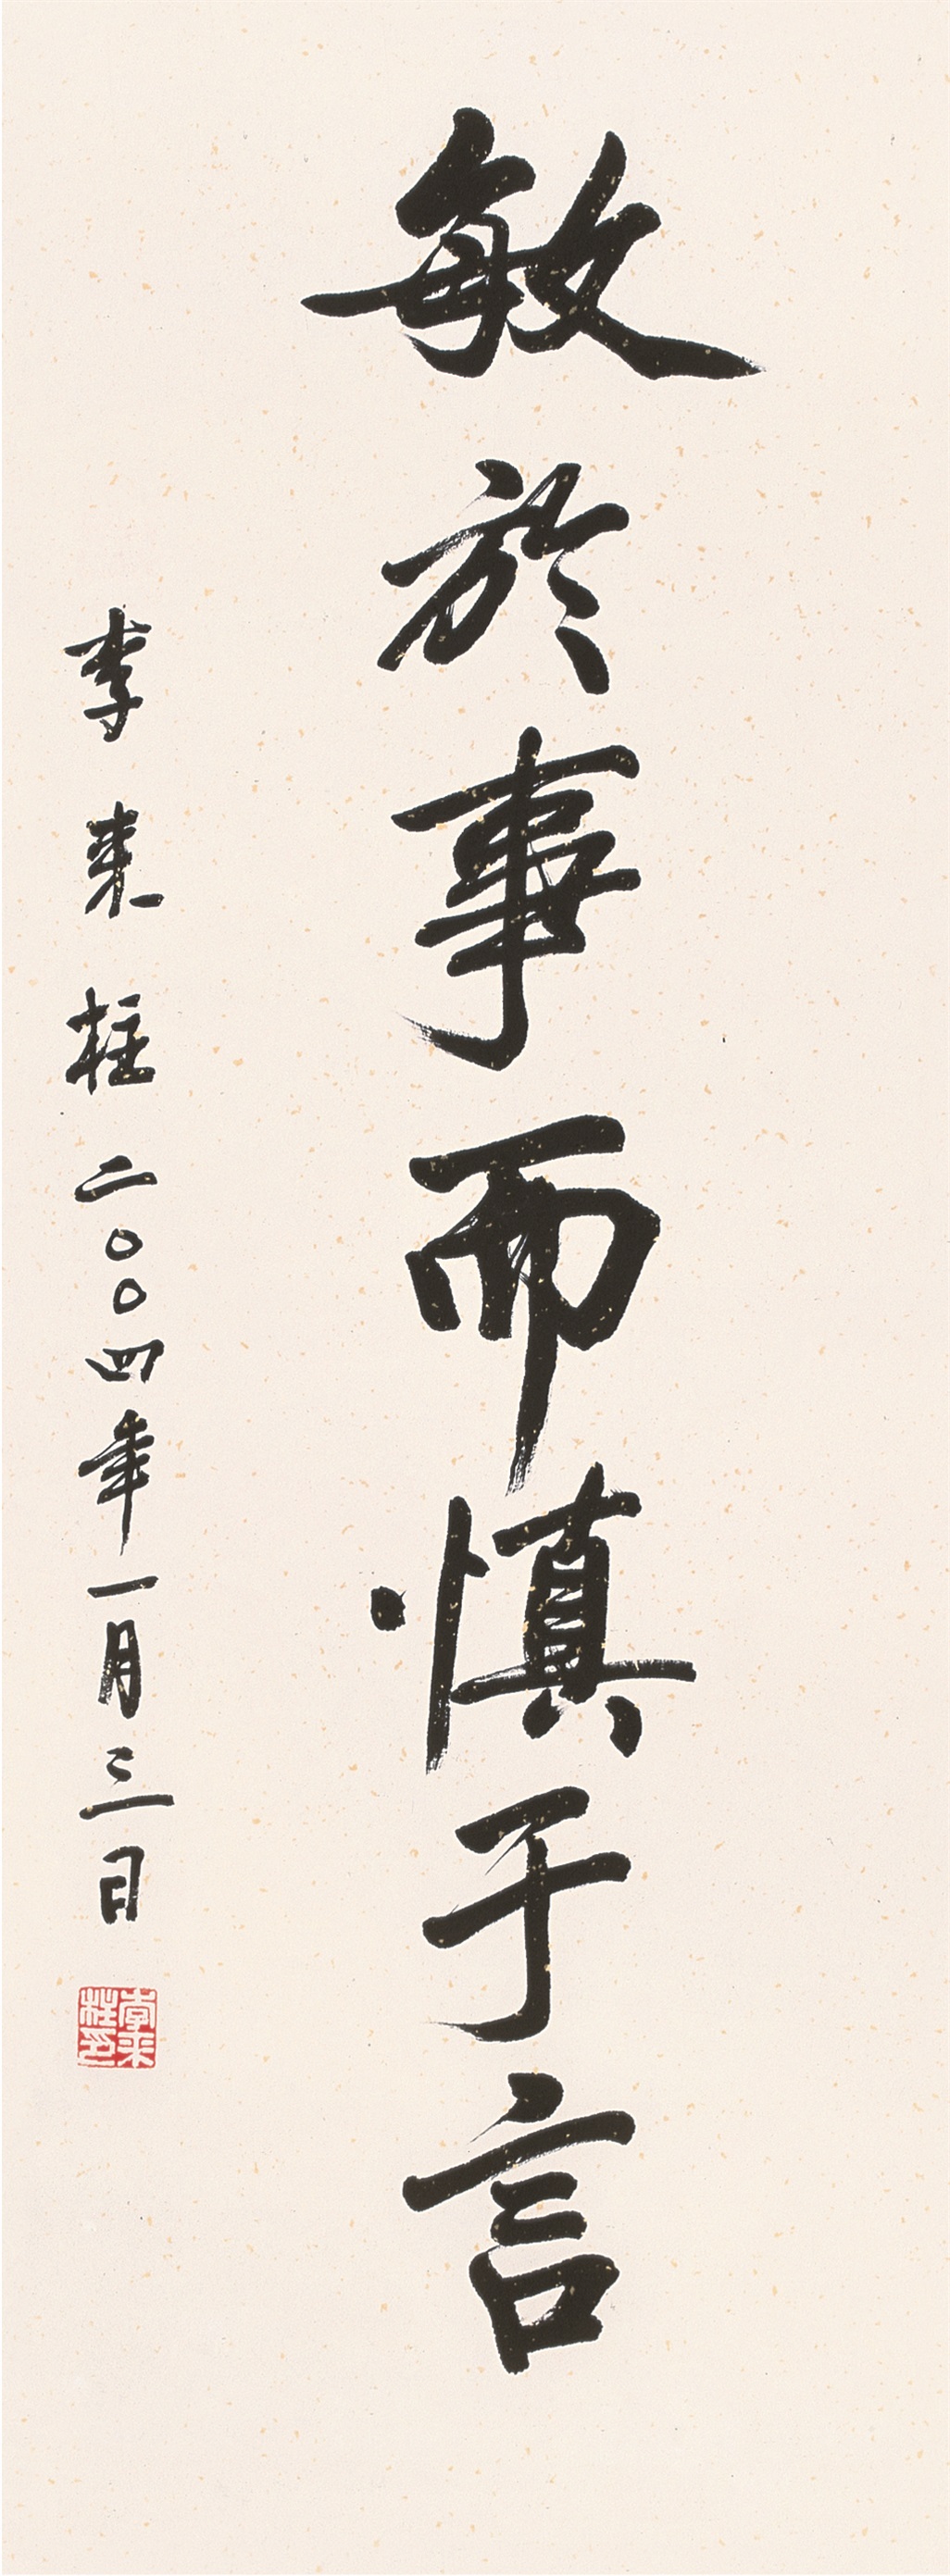 敏於事而慎于言
李来柱二〇〇四年一月三日
李来柱印